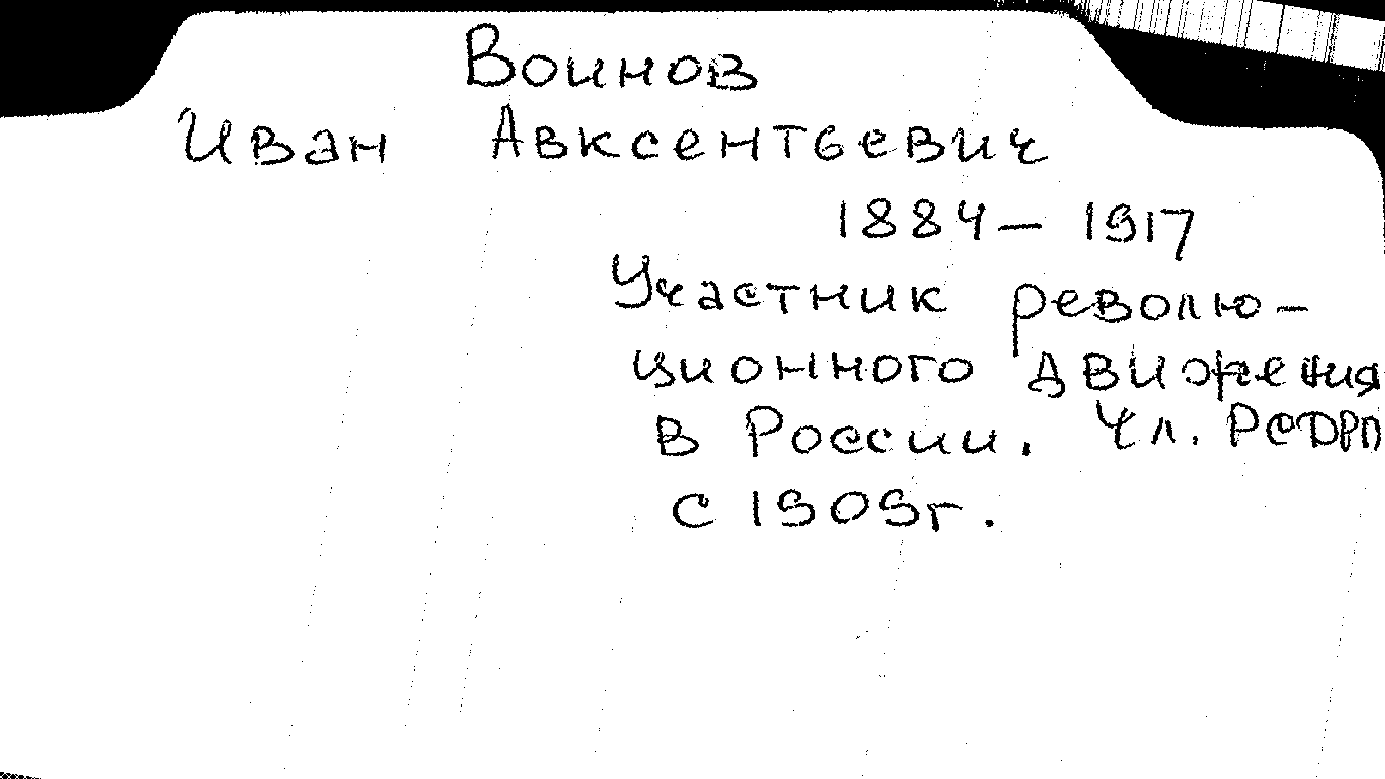 Воинов
Иван Авксентьевич
1884 – 1917
Участник револю-
ционного движения
в России. Чл. РСДРП
с 1909г.